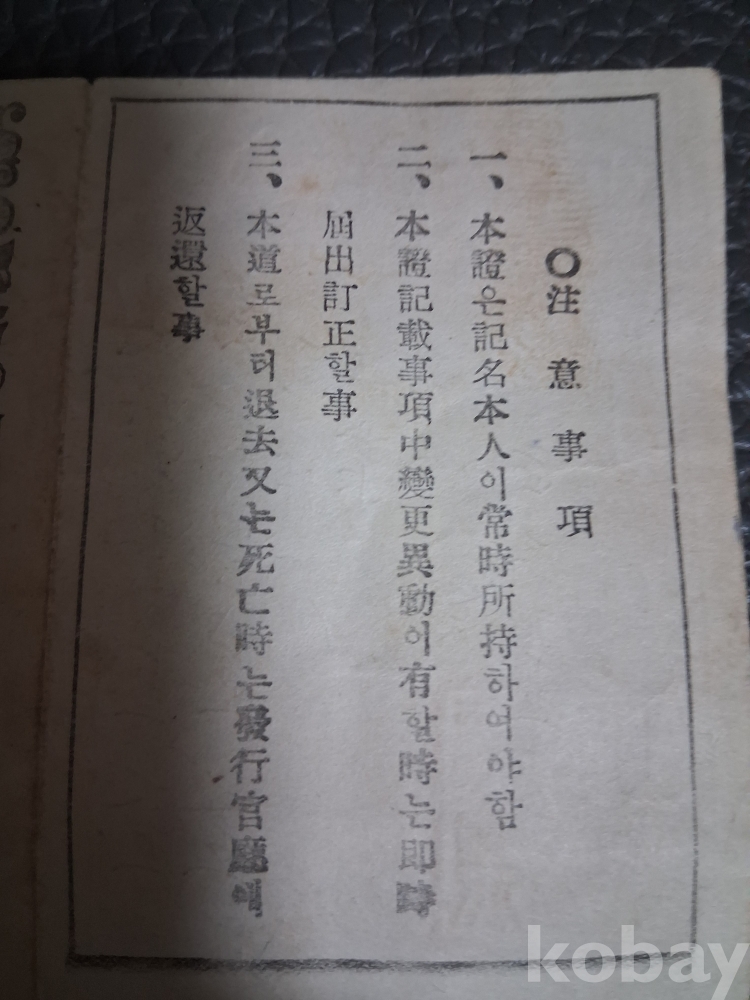 ○注意事項
一、本證은記名本人이常時所持하여야함
二、本證記載事項中變更異動이有할時는即時
届出訂正할事
三、本道로부터退去又는死亡時는發行官廳에
返還할事
kobay